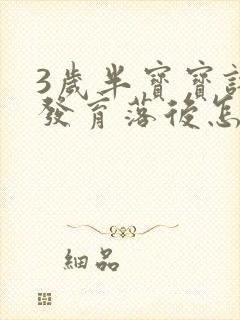 3歲半寶寶
發育落後怎
細品